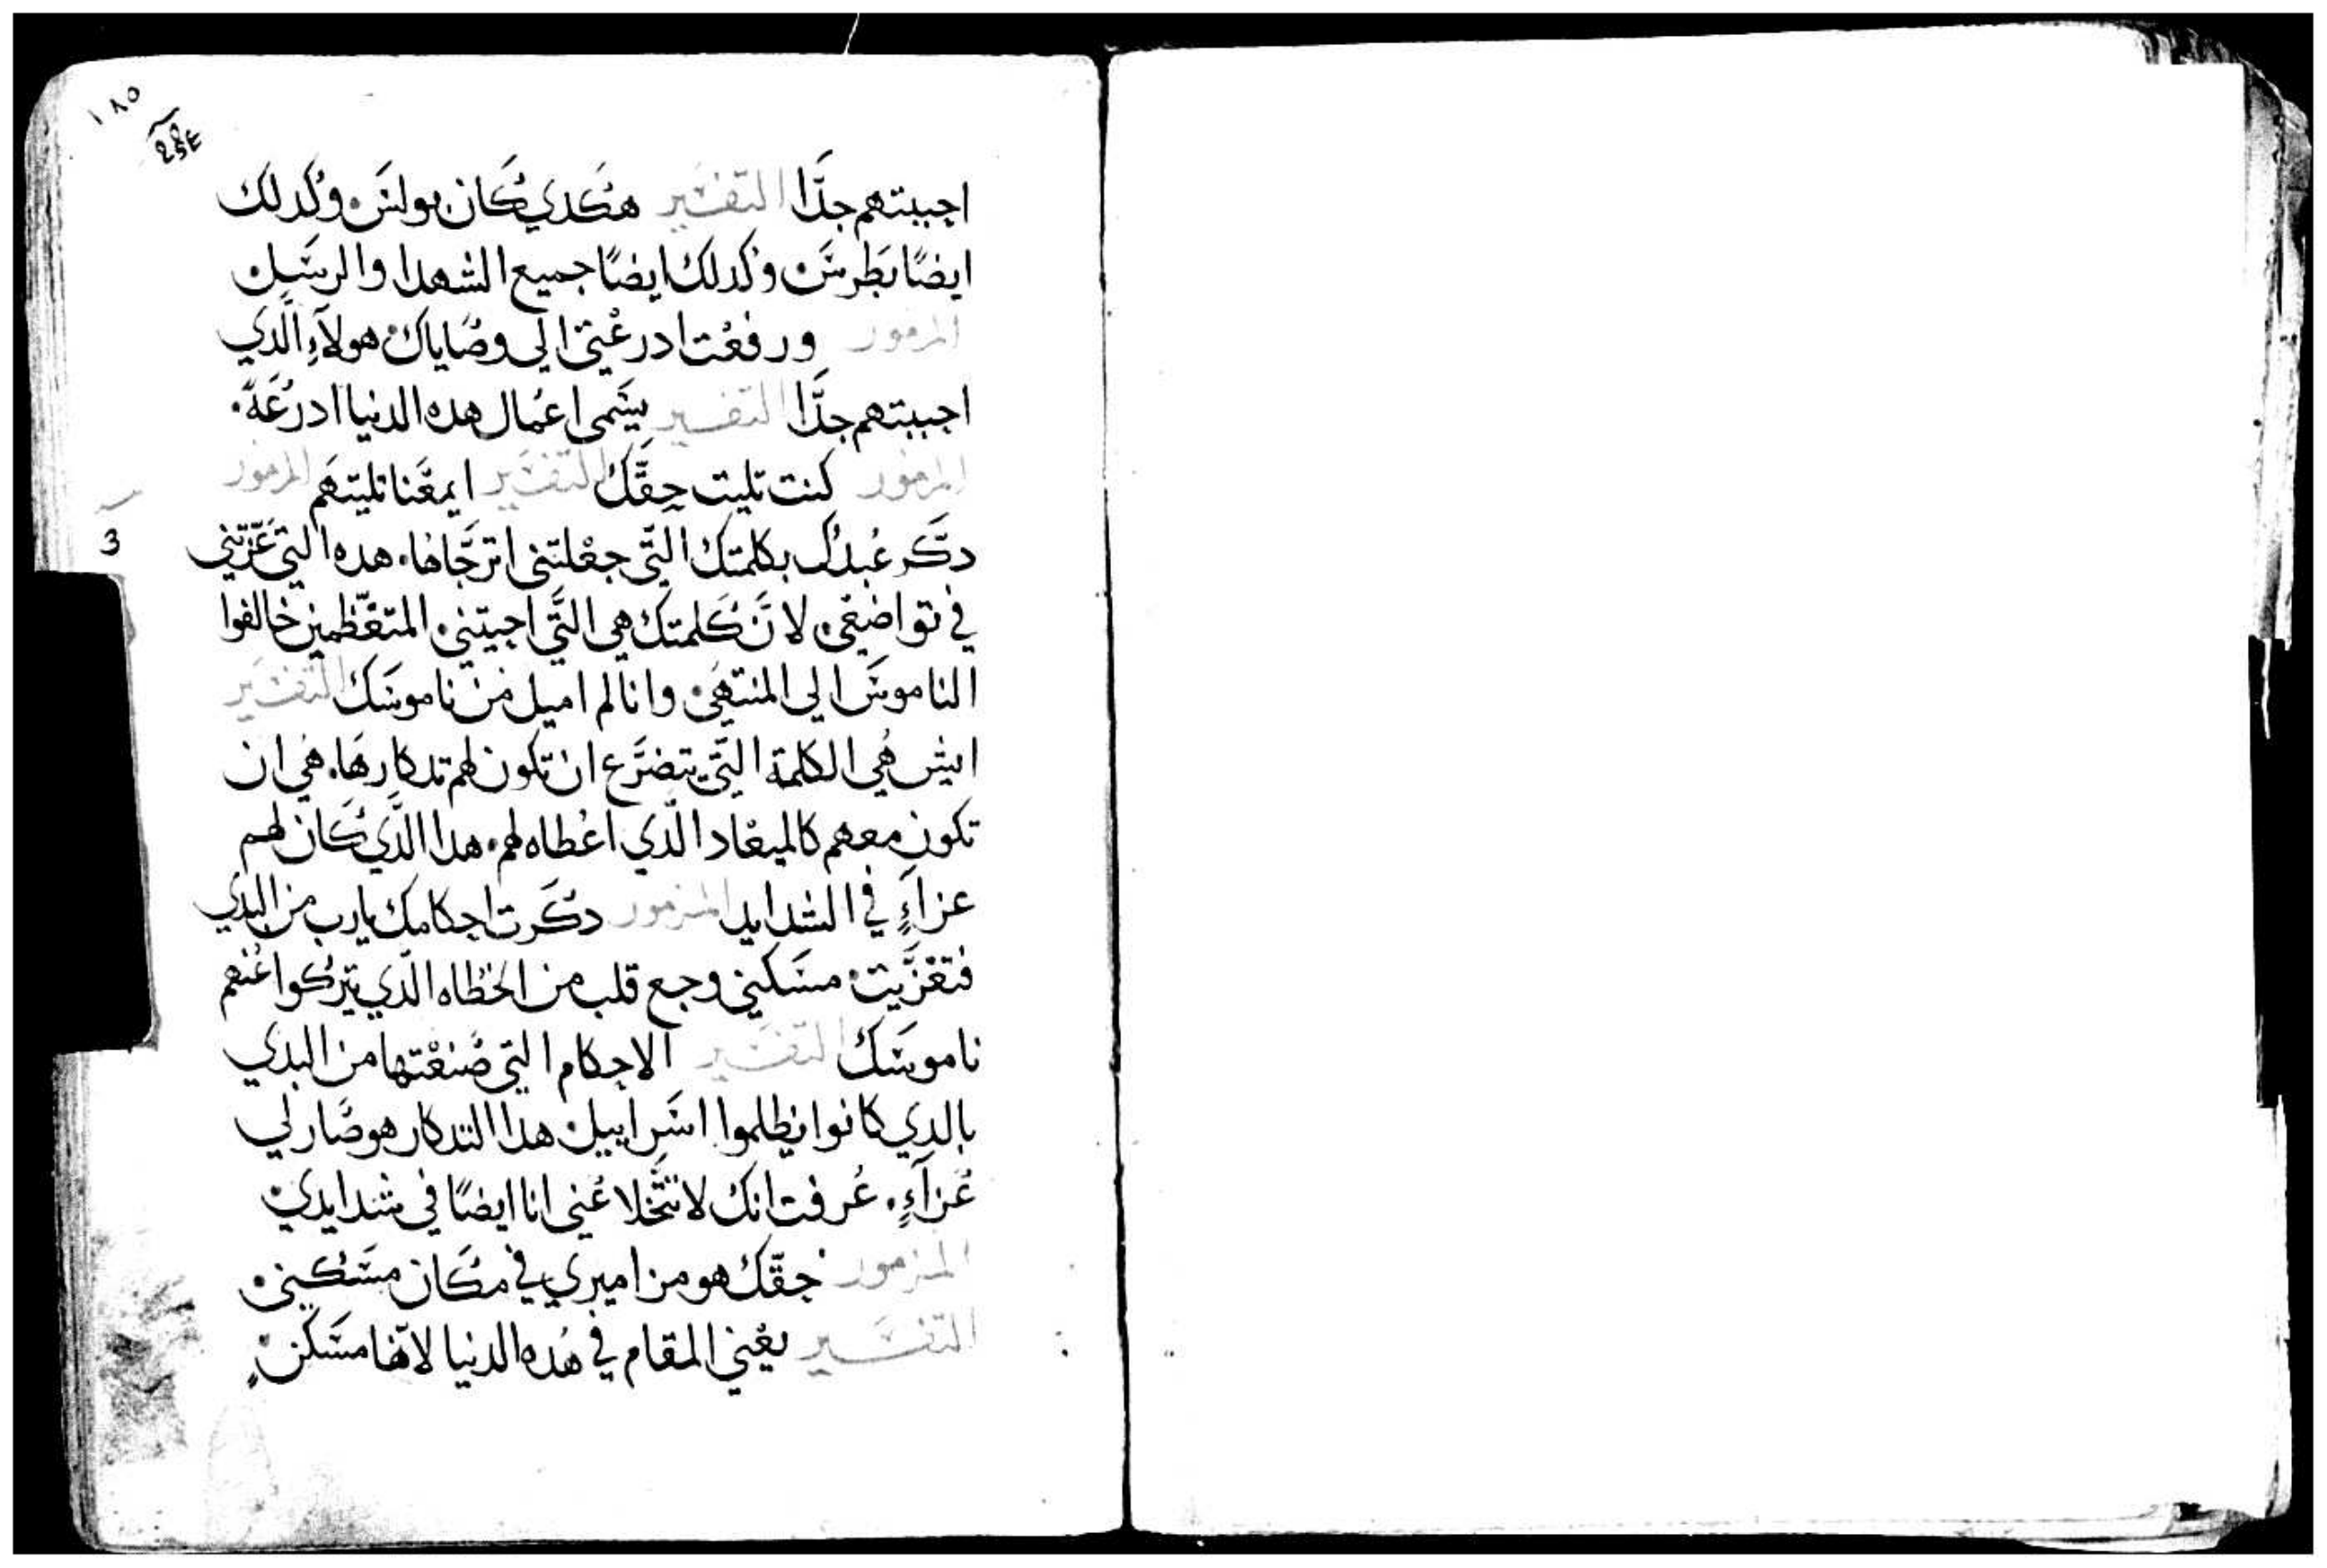 ١٨٥
اجببتهم جدَّا التفسير هكدي كان بولس وكدلك
ايضًا بطرس وكدلك ايضًا جميع الشهدا والرسل
المزمور ورفعت ادرعتي الي وصاياك هولآءِ الَّدي
اجببتهم جدَّا التفسير يسَمى اعمال هده الدنيا ادرعَةً
المزمور كنت تليت حقَّك التفسير ايمعَّنا تليتهم المزمور
3
دتكَر عبدك بكلمتك التَّي جعلتني اترجَّاها هده التي عَزّتني
في تواضعي لانَّ كلمتك هي التَّي احيتني المتعَّظمين خالفوا
الناموس الي المنتهي وانا لم اميل من ناموسك التفسير
ايش هي الكلمة التَّي يتضرَّع ان تكون لهم تدكارها هي ان
تكون معهم كالميعاد الَّدي اعطاه لهم هدا الَّدي كان لهم
عزآءٍ في الشدايد المزمور دكرت احكامك يارب من البدي
فتعَزَّيت مسَكني وجع قلب من الخطاه الَّدي تركوا عنهم
ناموسَك التفسير الاحكام التي صنعتها من البدي
بالدي كانوا يظلموا اسَراييل هدا التدكار هو صار لي
عزآءٍ عرفت انك لا تتخلا عني انا ايضًا في شدايدي
المزمور حقّك هو مزاميري في مكان مسَكني
التفسَير يعني المقام في هده الدنيا لانَّها مسَكنٍ